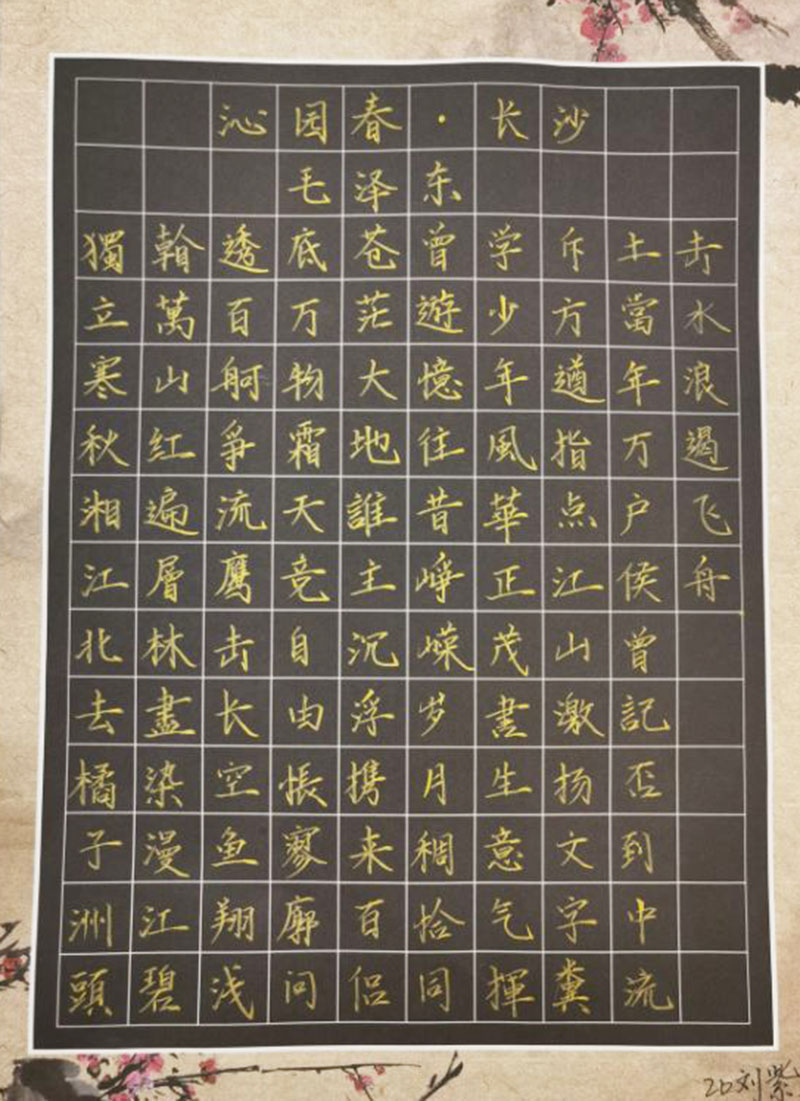 沁园春·长沙
毛泽东
獨立寒秋湘江北去橘子洲頭
翰萬山红遍層林盡染漫江碧
透百舸爭流鹰击长空鱼翔浅
底万物霜天竞自由悵寥廓问
苍茫大地誰主沉浮携来百侣
曾遊憶往昔峥嵘岁月稠拾同
学少年風華正茂書生意气揮
斥方遒指点江山激扬文字糞
土當年万户侯曾記否到中流
击水浪遏飞舟
26刘紫